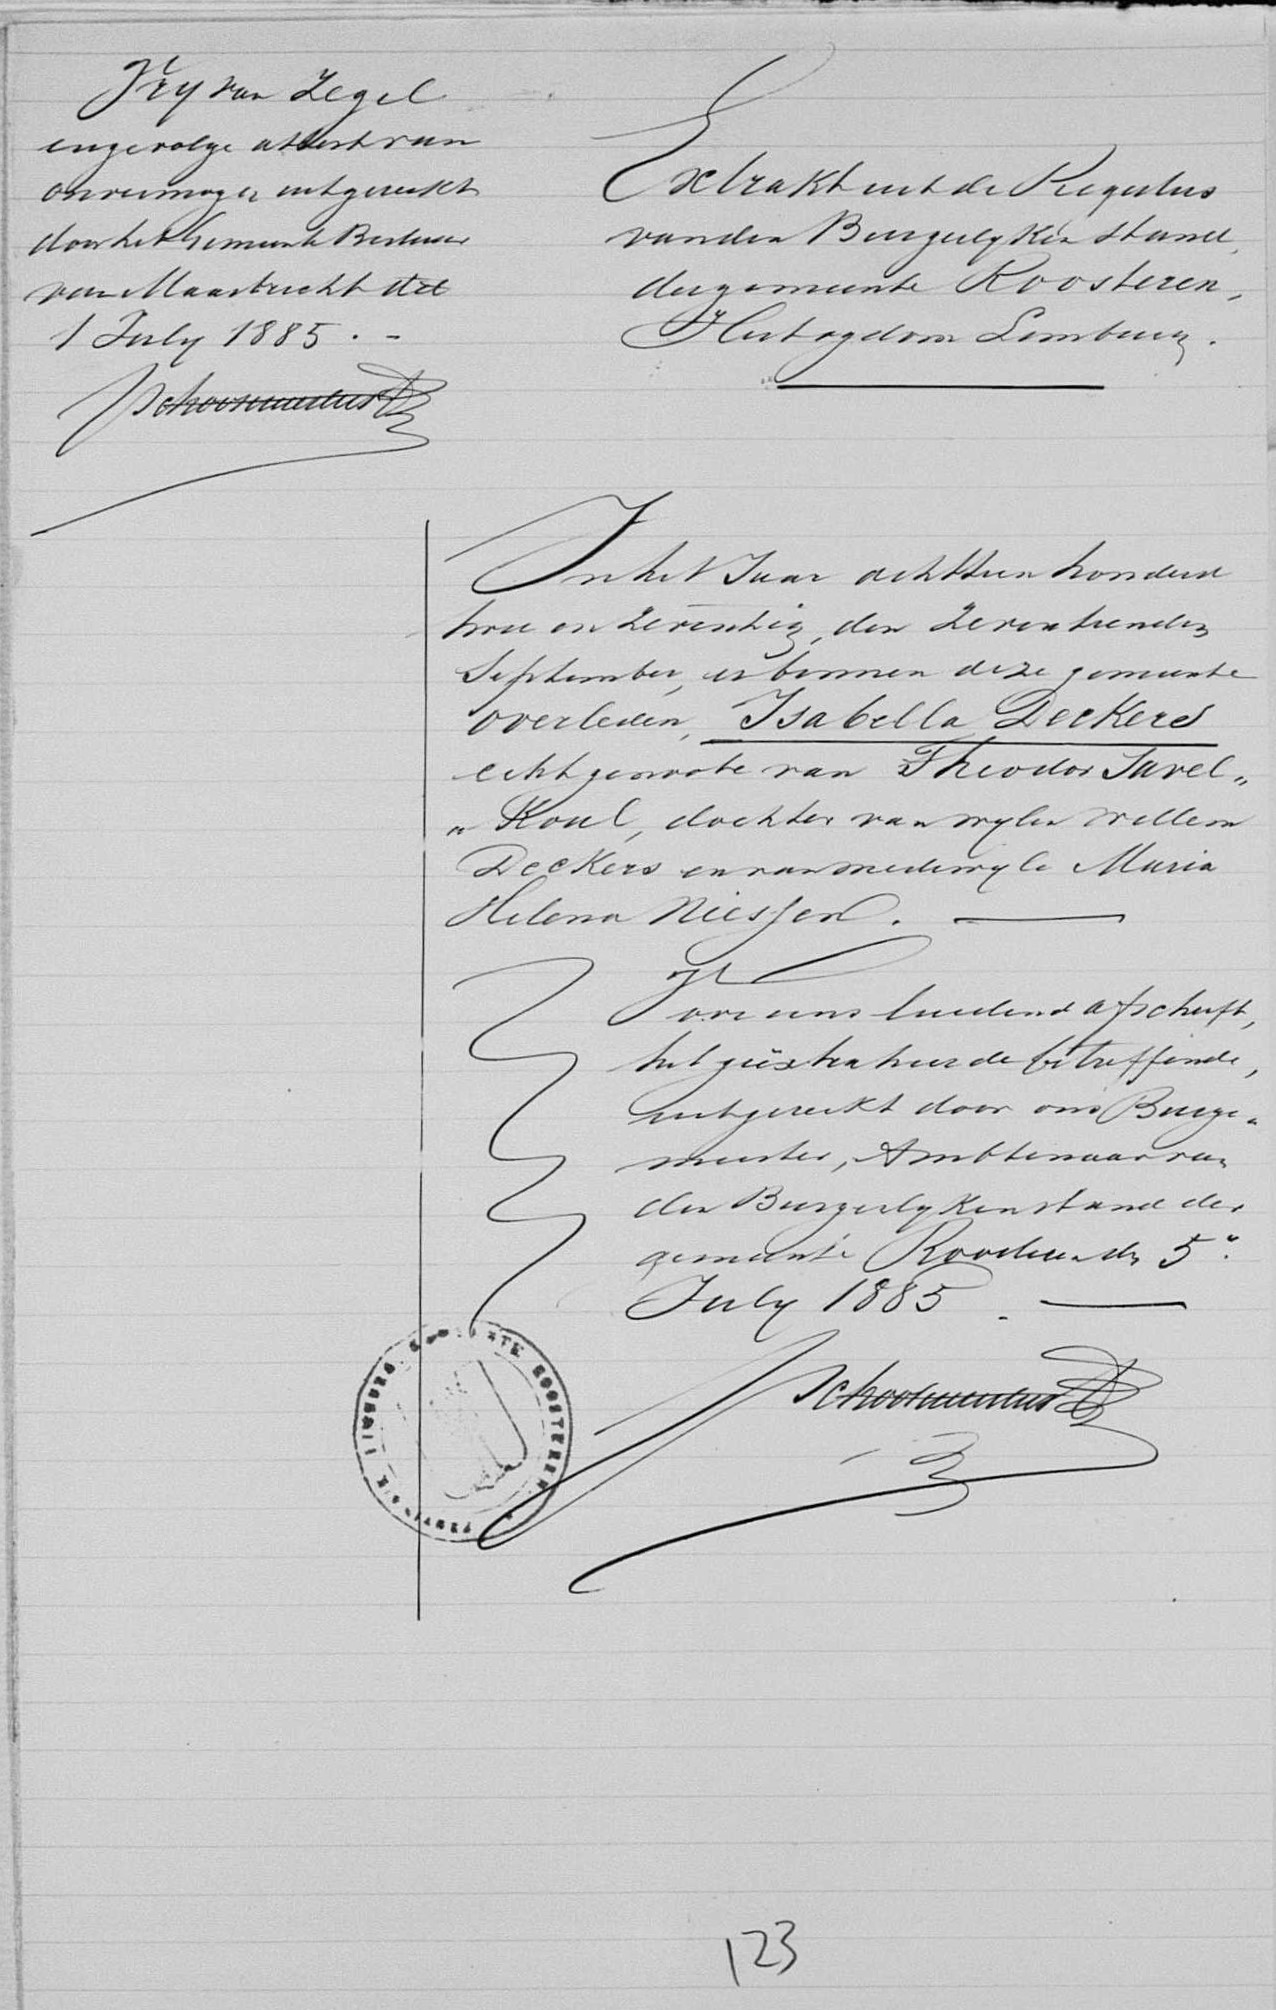 Vry van Zegel
ingevolge attest van
onvermogen uitgereikt
door het Gemeente Bestuur
van Maastricht dd
1 July 1885. -
Schoenmaeckers
Extrakt uit de Registers
van den Burgerlyken Stand,
der gemeente Roosteren,
Hertogdom Limburg.
In het Jaar achttien honderd
twee en zeventig, den zeventienden
September, is binnen deze gemeente
overleden, Isabella Deckers
echtgenoote van Theodor Savel„
„Koul, dochter van wylen Willem
Deckers en van medewyle Maria
Helena Niessen. —
Voor
overeens luidend afschrift,
het geëxtraheerde betreffende,
uitgereikt door ons Burge„
meester, Ambtenaar van
den Burgerlyken stand der
gemeente Roosteren den 5e.
July 1885. —
GEMEENTE ROOSTEREN
LIMBURG
123